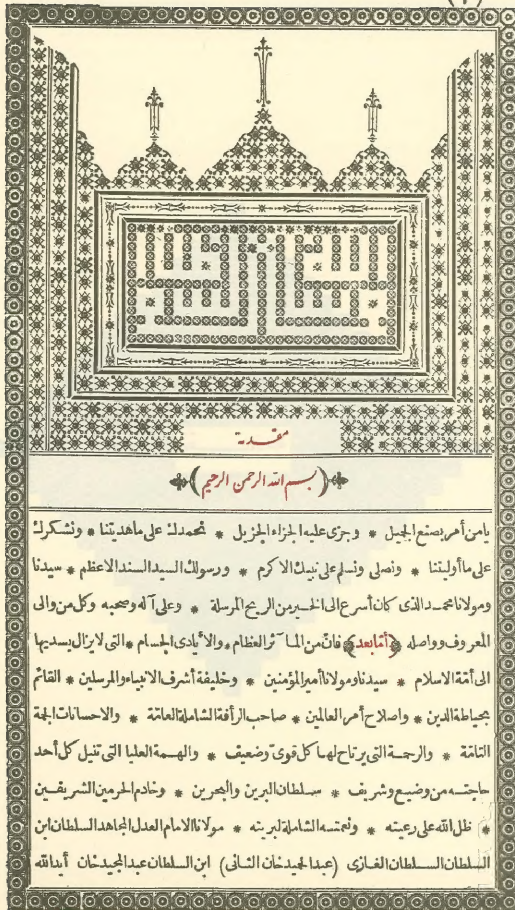 (٢)
مقدمة
﴿بسم الله الرحمن الرحيم﴾
يامن أمر بصنع الجميل * وجزى عليه الجزاء الجزيل * نحمدك على ماهديتنا * ونشكرك
على ماأوليتنا * ونصلى ونسلم على نبيك الاكرم * ورسولك السيد السند الاعظم * سيدنا
ومولانا محمد الذى كان أسرع الى الخير من الريح المرسلة * وعلى آله وصحبه وكل من والى
المعروف وواصله ﴿أمابعد﴾ فان من المآثر العظام * والأيادى الجسام * التى لايزال يسديها
الى أمة الاسلام * سيدنا ومولانا أمير المؤمنين * وخليفة أشرف الانبياء والمرسلين * القائم
بحياطة الدين * واصلاح أمر العالمين * صاحب الرأفة الشاملة العامة * والاحسانات الجمة
التامة * والرحمة التى يرتاح لها كل قوى وضعيف * والهمة العليا التى تنيل كل أحد
حاجته من وضيع وشريف * سلطان البرين والبحرين * وخادم الحرمين الشريفين
* ظل الله على رعيته * ونعمته الشاملة لبريته * مولانا الامام العدل المجاهد السلطان ابن
السلطان السلطان الغازى (عبد الحميد خان الثانى) ابن السلطان عبد المجيد خان أيد الله